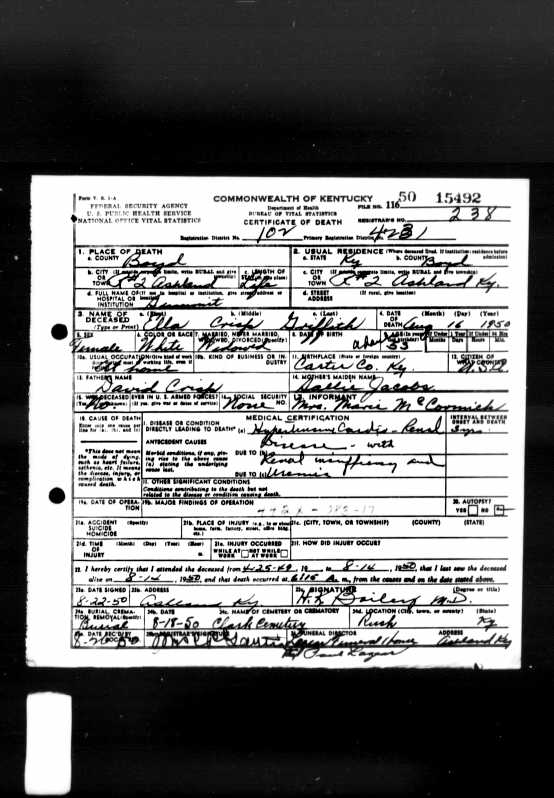 Form V. S. 1-A
FEDERAL SECURITY AGENCY
U. S. PUBLIC HEALTH SERVICE
NATIONAL OFFICE VITAL STATISTICS
COMMONWEALTH OF KENTUCKY
Department of Health
BUREAU OF VITAL STATISTICS
CERTIFICATE OF DEATH
FILE NO. 116 50 15492
REGISTRAR'S NO. 238
Registration District No. 102 Primary Registration District No.
1. PLACE OF DEATH
a. COUNTY Boyd
2. USUAL RESIDENCE (Where deceased lived. If institution: residence before admission)
a. STATE Ky b. COUNTY Boyd
b. CITY OR TOWN R #2 Ashland
c. LENGTH OF STAY Life
c. CITY OR TOWN R #2 Ashland Ky.
d. FULL NAME OF HOSPITAL OR INSTITUTION Summit
d. STREET ADDRESS (If rural, give location)
3. NAME OF DECEASED (Type or Print) a. (First) b. (Middle) Crisp c. (Last) Griffith
4. DATE OF DEATH (Month) (Day) (Year) Aug 16 1950
5. SEX Female
6. COLOR OR RACE White
7. MARRIED, NEVER MARRIED, WIDOWED, DIVORCED (Specify) Widowed
8. DATE OF BIRTH ?
10a. USUAL OCCUPATION At home
10b. KIND OF BUSINESS OR INDUSTRY
11. BIRTHPLACE (State or foreign country) Carter Co. Ky.
12. CITIZEN OF WHAT COUNTRY?
13. FATHER'S NAME David Crisp
14. MOTHER'S MAIDEN NAME Sallie Jacobs
15. WAS DECEASED EVER IN U. S. ARMED FORCES? No.
16. SOCIAL SECURITY NO. None
17. INFORMANT Mrs. Marie McCormick
18. CAUSE OF DEATH
MEDICAL CERTIFICATION
INTERVAL BETWEEN ONSET AND DEATH
I. DISEASE OR CONDITION DIRECTLY LEADING TO DEATH* (a) Hypertensive Cardio-Renal
Disease - with
ANTECEDENT CAUSES
Morbid conditions, if any, giving rise to the above cause (a) stating the underlying cause last.
DUE TO (b) Renal insufficiency and
DUE TO (c) Uremia
*This does not mean the mode of dying, such as heart failure, asthenia, etc. It means the disease, injury, or complication which caused death.
II. OTHER SIGNIFICANT CONDITIONS
Conditions contributing to the death but not related to the disease or condition causing death.
19a. DATE OF OPERATION
19b. MAJOR FINDINGS OF OPERATION
20. AUTOPSY? YES NO
21a. ACCIDENT SUICIDE HOMICIDE (Specify)
21b. PLACE OF INJURY
21c. (CITY, TOWN, OR TOWNSHIP) (COUNTY) (STATE)
21d. TIME OF INJURY (Month) (Day) (Year) (Hour)
21e. INJURY OCCURRED WHILE AT WORK NOT WHILE AT WORK
21f. HOW DID INJURY OCCUR?
22. I hereby certify that I attended the deceased from 4-25-49, 19 to 8-14, 1950, that I last saw the deceased
alive on 8-14, 1950, and that death occurred at 6:15 A. m., from the causes and on the date stated above.
23a. DATE SIGNED 8-22-50
23b. ADDRESS Ashland Ky
23c. SIGNATURE (Degree or title) M.D.
24a. BURIAL, CREMATION, REMOVAL (Specify) Burial
24b. DATE 8-18-50
24c. NAME OF CEMETERY OR CREMATORY Clark Cemetery
24d. LOCATION (City, town, or county) (State) Rush Ky
25a. DATE REC'D BY
25b. REGISTRAR'S SIGNATURE
26. FUNERAL DIRECTOR Lazear Funeral Home
ADDRESS Ashland Ky
By Paul Lazear